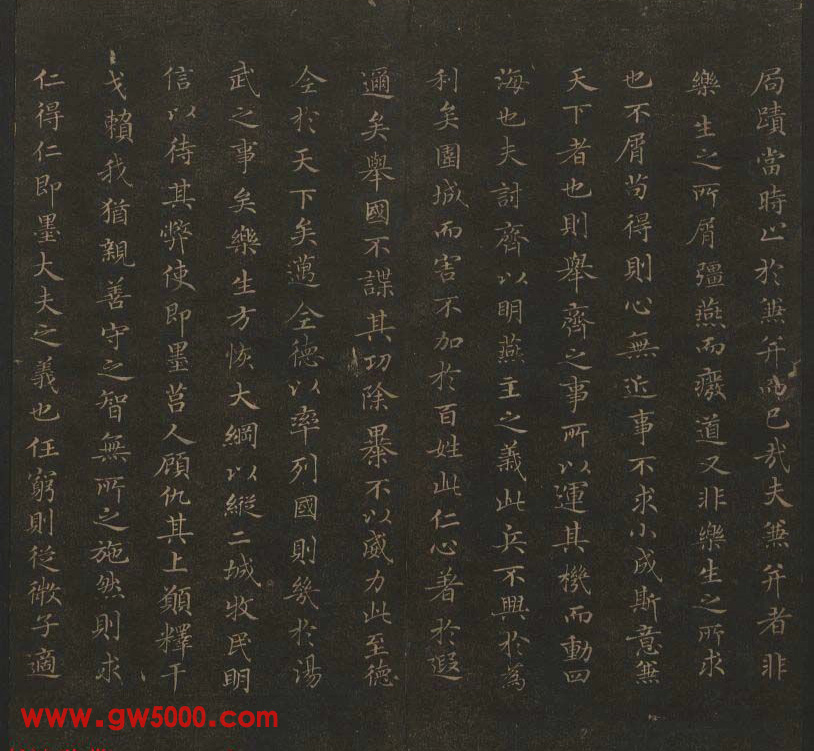 局蹟當時止於兼并而已哉夫兼并者非
樂生之所屑彊燕而癈道又非樂生之所求
也不屑茍得則心無近事不求小成斯意無
天下者也則舉齊之事所以運其機而動四
海也夫討齊以明燕主之義此兵不興於為
利矣圍城而害不加於百姓此仁心著於遐
邇矣舉國不謀其功除暴不以威力此至德
全於天下矣邁全德以率列國則幾於湯
武之事矣樂生方恢大綱以縱二城牧民明
信以待其弊使即墨莒人顧仇其上願釋干
戈賴我猶親善守之智無所之施然則求
仁得仁即墨大夫之義也任窮則從微子適
www.gw5000.com